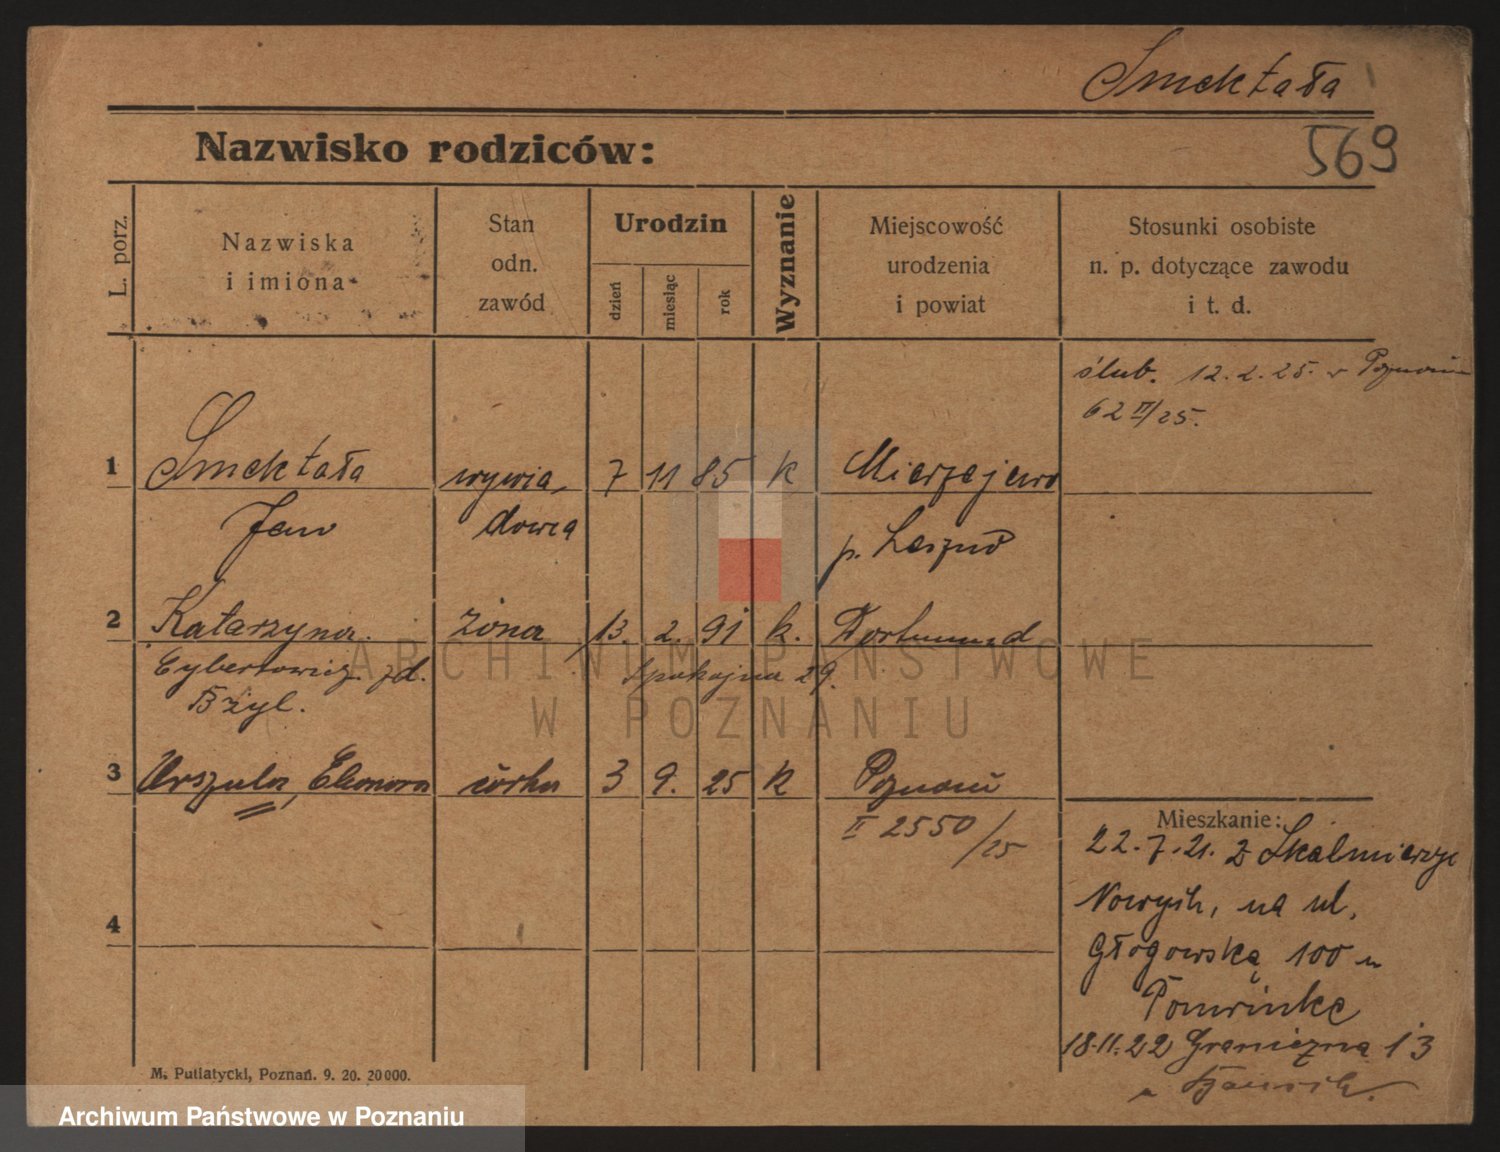 Smektała
Nazwisko rodziców:
569
L. porz.
Nazwiska
i imiona
Stan
odn.
zawód
Urodzin
dzień
miesiąc
rok
Wyznanie
Miejscowość
urodzenia
i powiat
Stosunki osobiste
n. p. dotyczące zawodu
i t. d.
ślub. 12.2.25. w Poznaniu
62 II/25.
1 Smektała wywia- 7 11 85 k Mierzejewo
Jan dowca p. Leszno
2 Katarzyna żona 13. 2. 91 k. Dortmund
Cybertowicz zd. Spokojna 29.
Bżyl.
3 Urszula, Eleonora córka 3 9. 25 k Poznań
II 2550/25
4
Mieszkanie:
22.7.21. z Skalmierzyc
Nowych, na ul.
Głogowską 100 u
18.11.22 Graniczna 13
M. Putiatycki, Poznań. 9. 20. 20000.
ARCHIWUM PAŃSTWOWE
W POZNANIU
Archiwum Państwowe w Poznaniu